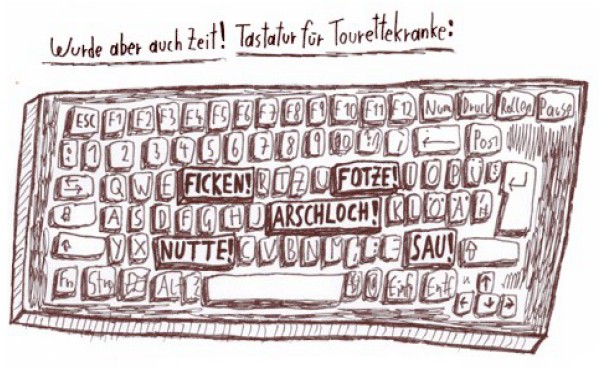 Wurde aber auch Zeit! Tastatur für Tourettekranke:
ESC F1 F2 F3 F4 F5 F6 F7 F8 F9 F10 F11 F12 Num Druck Rollen Pause
1 2 3 4 5 6 7 8 9 Pos1
Q W E FICKEN! R T Z U FOTZE! I O P Ü
A S D F G H J ARSCHLOCH! K L Ö Ä #
Y X NUTTE! C V B N M SAU!
Fn Strg Alt Einfg Entf